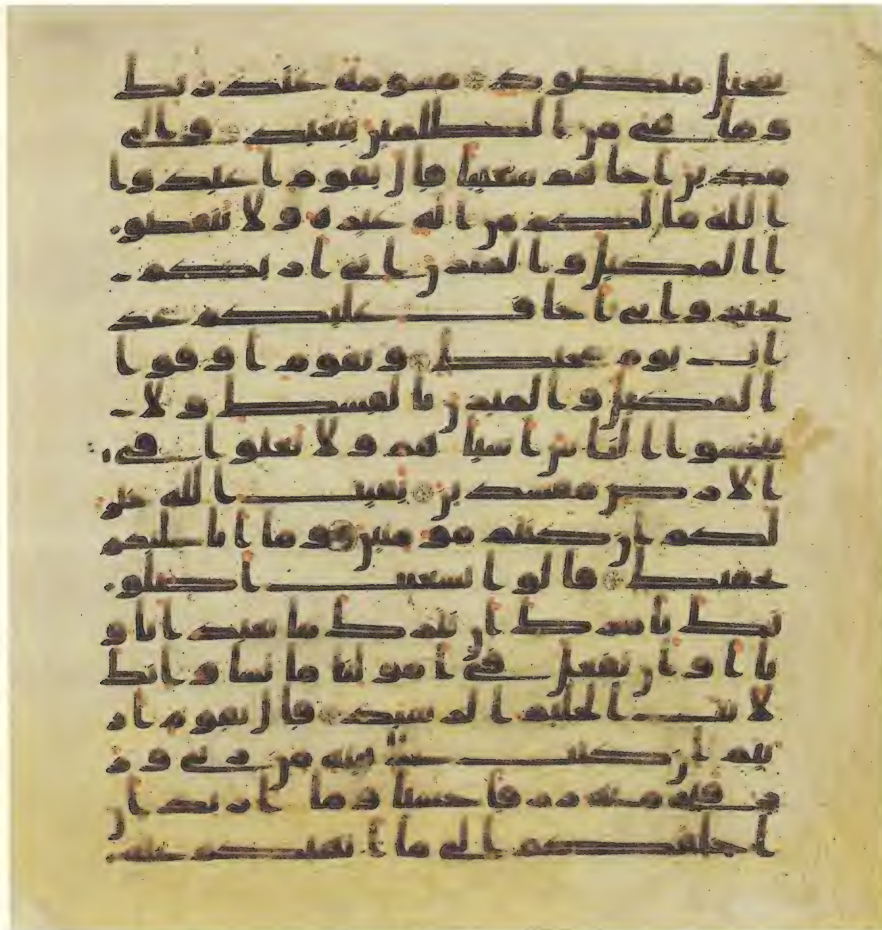 سجيل منضود مسومة عند ربك
وما هي من الظلمين ببعيد والى
مدين اخاهم شعيبا قال يقوم اعبدوا
الله ما لكم من اله غيره ولا تنقصو
ا المكيل والميزن اني اريكم
بخير واني اخاف عليكم عذ
اب يوم محيط ويقوم اوفوا
المكيل والميزن بالقسط ولا
تبخسوا الناس اشياهم ولا تعثوا في
الارض مفسدين بقيت الله خير
لكم ان كنتم مومنين وما انا عليكم
بحفيظ قالوا يشعيب اصلو
تك تامرك ان نترك ما يعبد اباو
نا او ان نفعل في امولنا ما نشا وانك
لانت الحليم الرشيد قال يقوم ار
يتم ان كنت على بينة من ربي ورز
قني منه رزقا حسنا وما اريد ان
اخلفكم الى ما انهيكم عنه